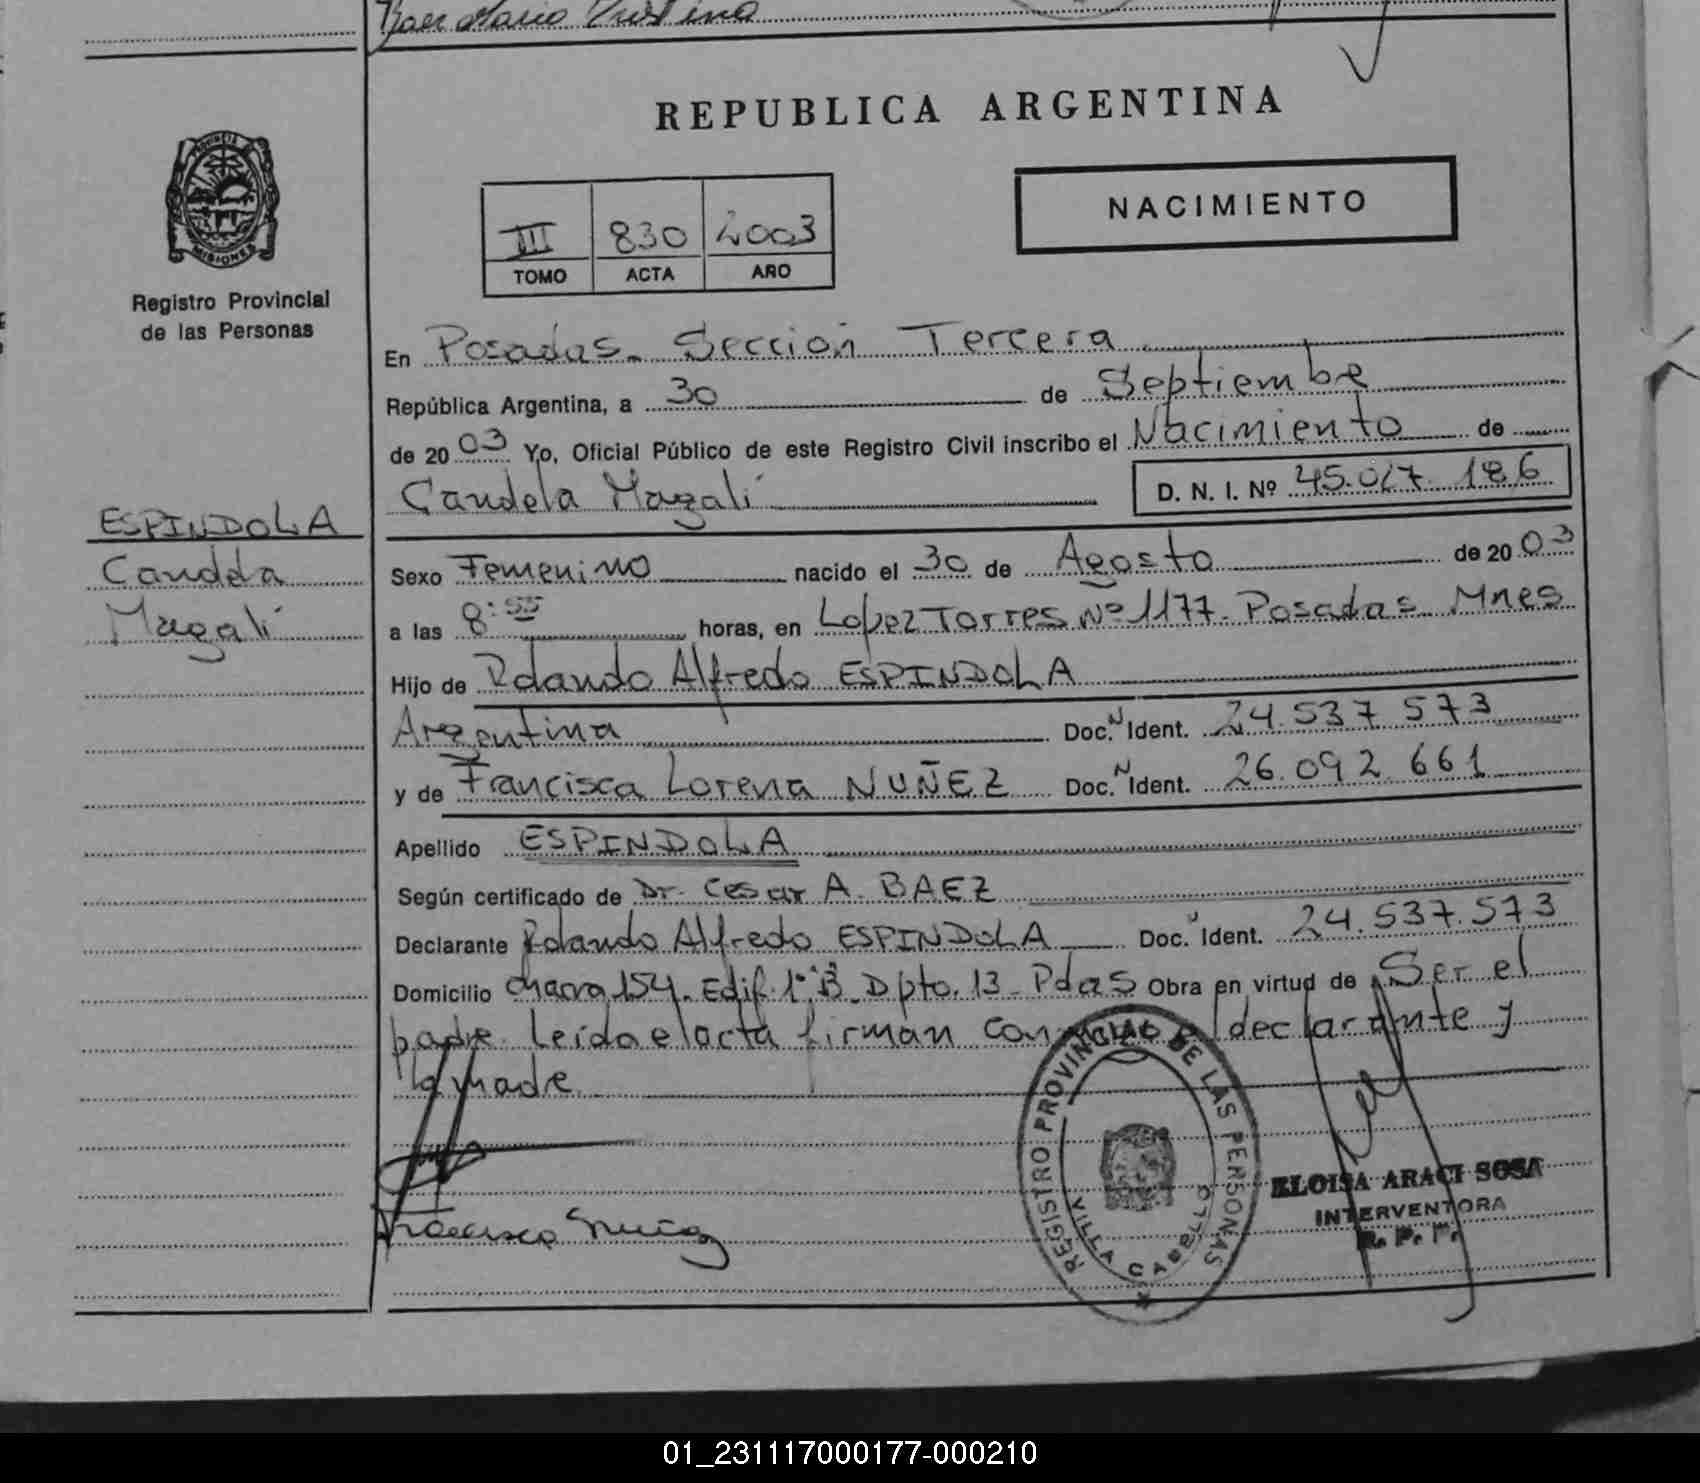 Baez Mario Cristino
REPUBLICA ARGENTINA
PROVINCIA DE
MISIONES
Registro Provincial
de las Personas
NACIMIENTO
III 830 2003
TOMO ACTA AÑO
En Posadas. Sección Tercera
República Argentina, a 30 de Septiembre
de 2003 Yo, Oficial Público de este Registro Civil inscribo el Nacimiento de
Candela Magalí D. N. I. Nº 45.017.186
ESPINDOLA
Candela
Magalí
Sexo Femenino nacido el 30 de Agosto de 2003
a las 8:55 horas, en Lopez Torres Nº 1177. Posadas Mnes
Hijo de Rolando Alfredo ESPINDOLA
Argentina Doc. N Ident. 24.537 573
y de Francisca Lorena NUÑEZ Doc. N Ident. 26.092.661
Apellido ESPINDOLA
Según certificado de Dr. Cesar A. BAEZ
Declarante Rolando Alfredo ESPINDOLA Doc. N Ident. 24.537.573
Domicilio chacra 154. Edif. 1º B. Dpto. 13 - Pdas Obra en virtud de Ser el
padre. Leída el acta firman conmigo el declarante y
la madre
REGISTRO PROVINCIAL DE LAS PERSONAS
VILLA CABELLO
ELOISA ARACI SOSA
INTERVENTORA
R. P. P.
Francisca Nuñez
01_231117000177-000210